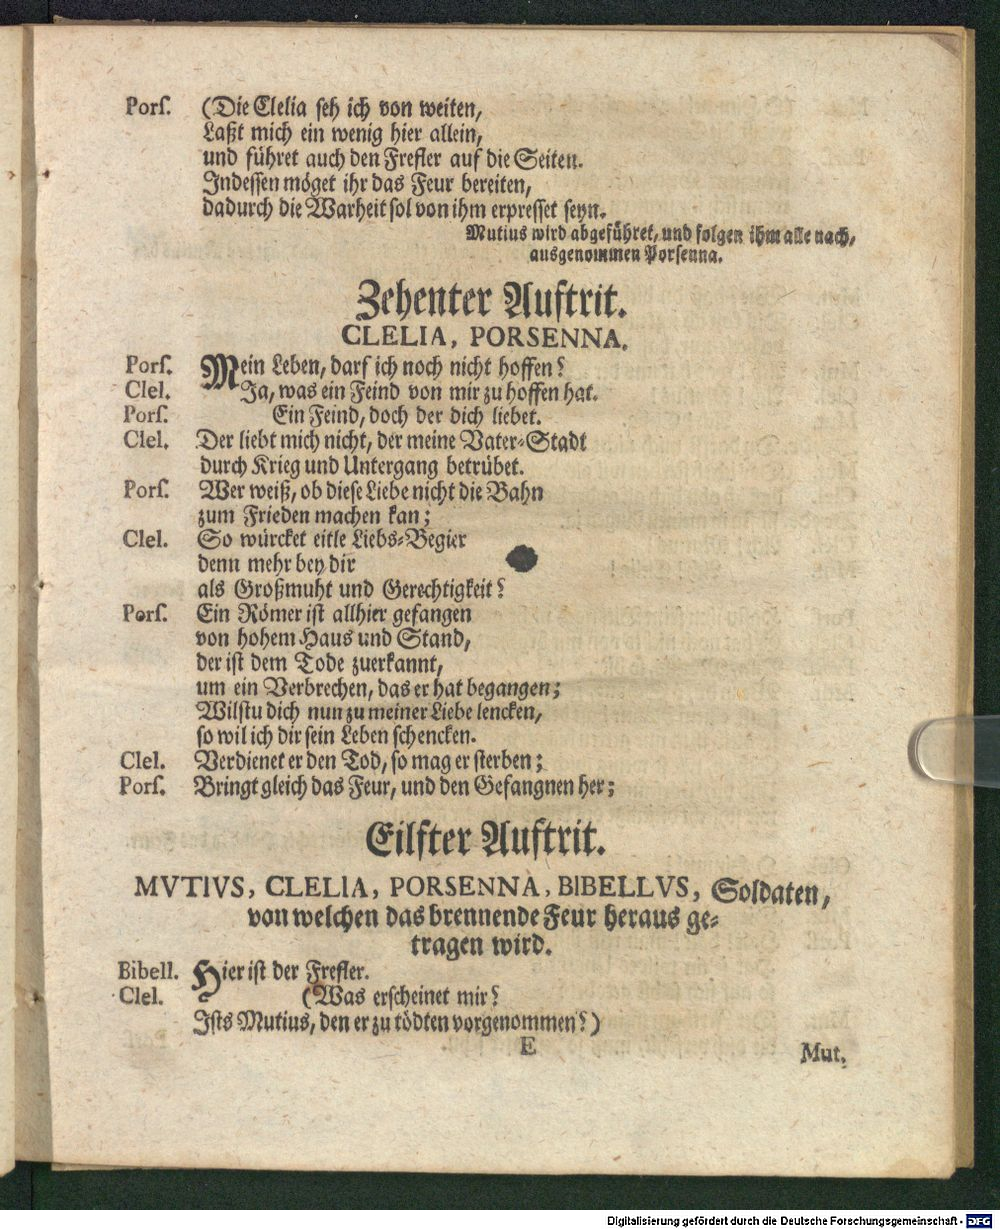 Porſ. (Die Clelia ſeh ich von weiten,
Laßt mich ein wenig hier allein,
und führet auch den Frefler auf die Seiten.
Indeſſen möget ihr das Feur bereiten,
dadurch die Warheit ſol von ihm erpreſſet ſeyn.
Mutius wird abgeführet, und folgen ihm alle nach,
ausgenommen Porſenna.
Zehenter Auftrit.
CLELIA, PORSENNA.
Porſ. Mein Leben, darf ich noch nicht hoffen?
Clel. Ja, was ein Feind von mir zu hoffen hat.
Porſ. Ein Feind, doch der dich liebet.
Clel. Der liebt mich nicht, der meine Vater-Stadt
durch Krieg und Untergang betrübet.
Porſ. Wer weiß, ob dieſe Liebe nicht die Bahn
zum Frieden machen kan;
Clel. So würcket eitle Liebs-Begier
denn mehr bey dir
als Großmuht und Gerechtigkeit?
Porſ. Ein Römer iſt allhier gefangen
von hohem Haus und Stand,
der iſt dem Tode zuerkannt,
um ein Verbrechen, das er hat begangen;
Wilſtu dich nun zu meiner Liebe lencken,
ſo wil ich dir ſein Leben ſchencken.
Clel. Verdienet er den Tod, ſo mag er ſterben;
Porſ. Bringt gleich das Feur, und den Gefangnen her;
Eilfter Auftrit.
MVTIVS, CLELIA, PORSENNA, BIBELLVS, Soldaten,
von welchen das brennende Feur heraus ge-
tragen wird.
Bibell. Hier iſt der Frefler.
Clel. (Was erſcheinet mir?
Iſts Mutius, den er zu tödten vorgenommen?)
E
Mut.
Digitalisierung gefördert durch die Deutsche Forschungsgemeinschaft - DFG